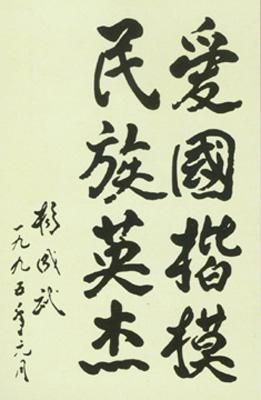 愛國揩模
民族英杰
楊成武
一九九五年元月